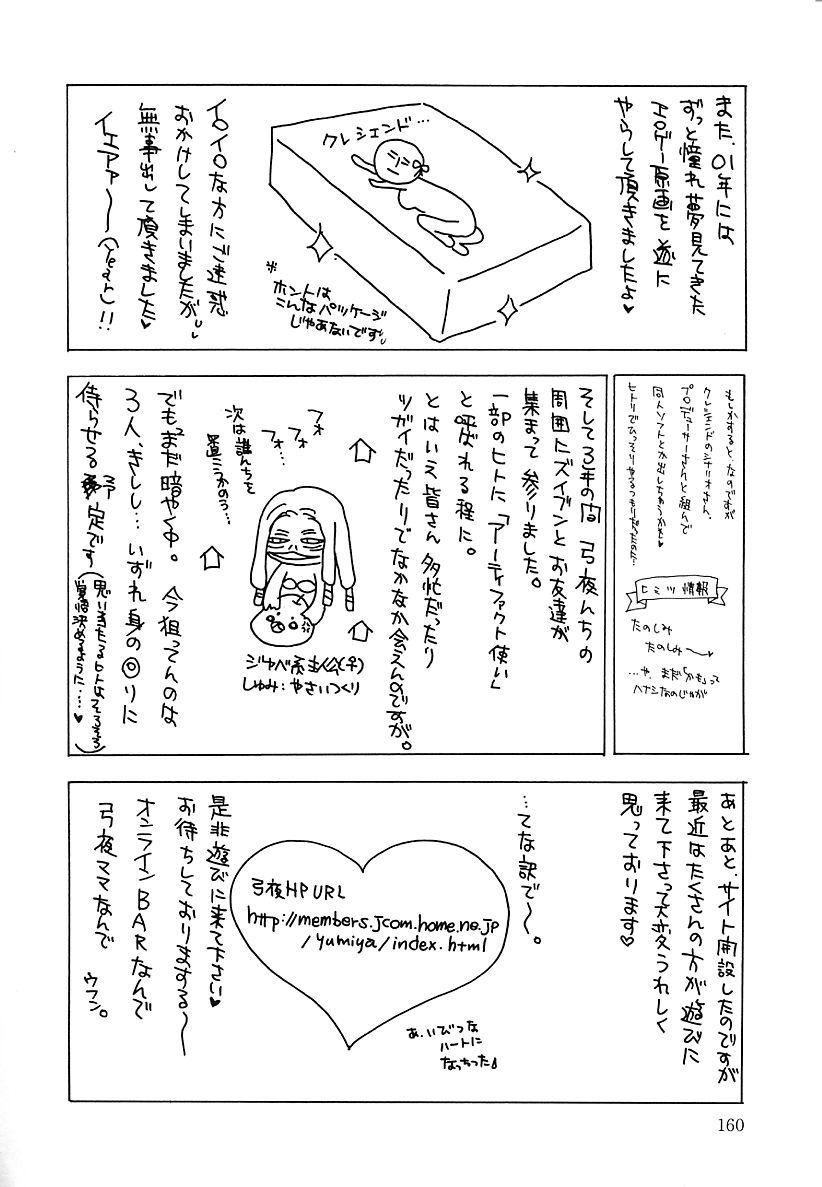 また、01年には
ずっと憧れ夢見てきた
エロゲー原画を遂に
やらして頂きましたよ♥
クレシェンド…
※ホントは
こんなパッケージ
じゃあないです
イロイロな方にご迷惑
おかけしてしまいましたが
無事出して頂きました♥
イェアァ〜(Yeah)!!
もしかすると、なのですが
クレシェンドのシナリオさん、
プロデューサーさんと組んで
同人ソフトとか出しちゃうかも♥
ヒトリでひっそりやるつもりだったのに…
ヒミツ情報
たのしみ
たのしみ〜
…や、まだ「かも」って
ハナシなのじゃが
そして3年の間 弓夜んちの
周囲にズイブンとお友達が
集まって参りました。
一部のヒトに「アーティファクト使い」
と呼ばれる程に。
とはいえ皆さん多忙だったり
ツガイだったりでなかなか会えんのですが。
フォ
フォ
フォ…
次は誰んちを
置こうかのう…
ジャベ系主人公(♀)
しゅみ:やさいつくり
でもまだ暗やく中。今狙ってんのは
3人、きしし…いずれ身の回りに
待らせる予定です
(思い当たるヒトはそろそろ
覚悟決めるように…♥)
あとあと、サイト開設したのですが
最近はたくさんの方が遊びに
来て下さって大変うれしく
思っております♥
…てな訳で〜。
弓夜HP URL
http://members.jcom.home.ne.jp
/yumiya/index.html
あ、いびつな
ハートに
なっちった♪
是非遊びに来て下さい♥
お待ちしておりまする〜
オンラインBARなんで
弓夜ママなんで
ウフン。
160